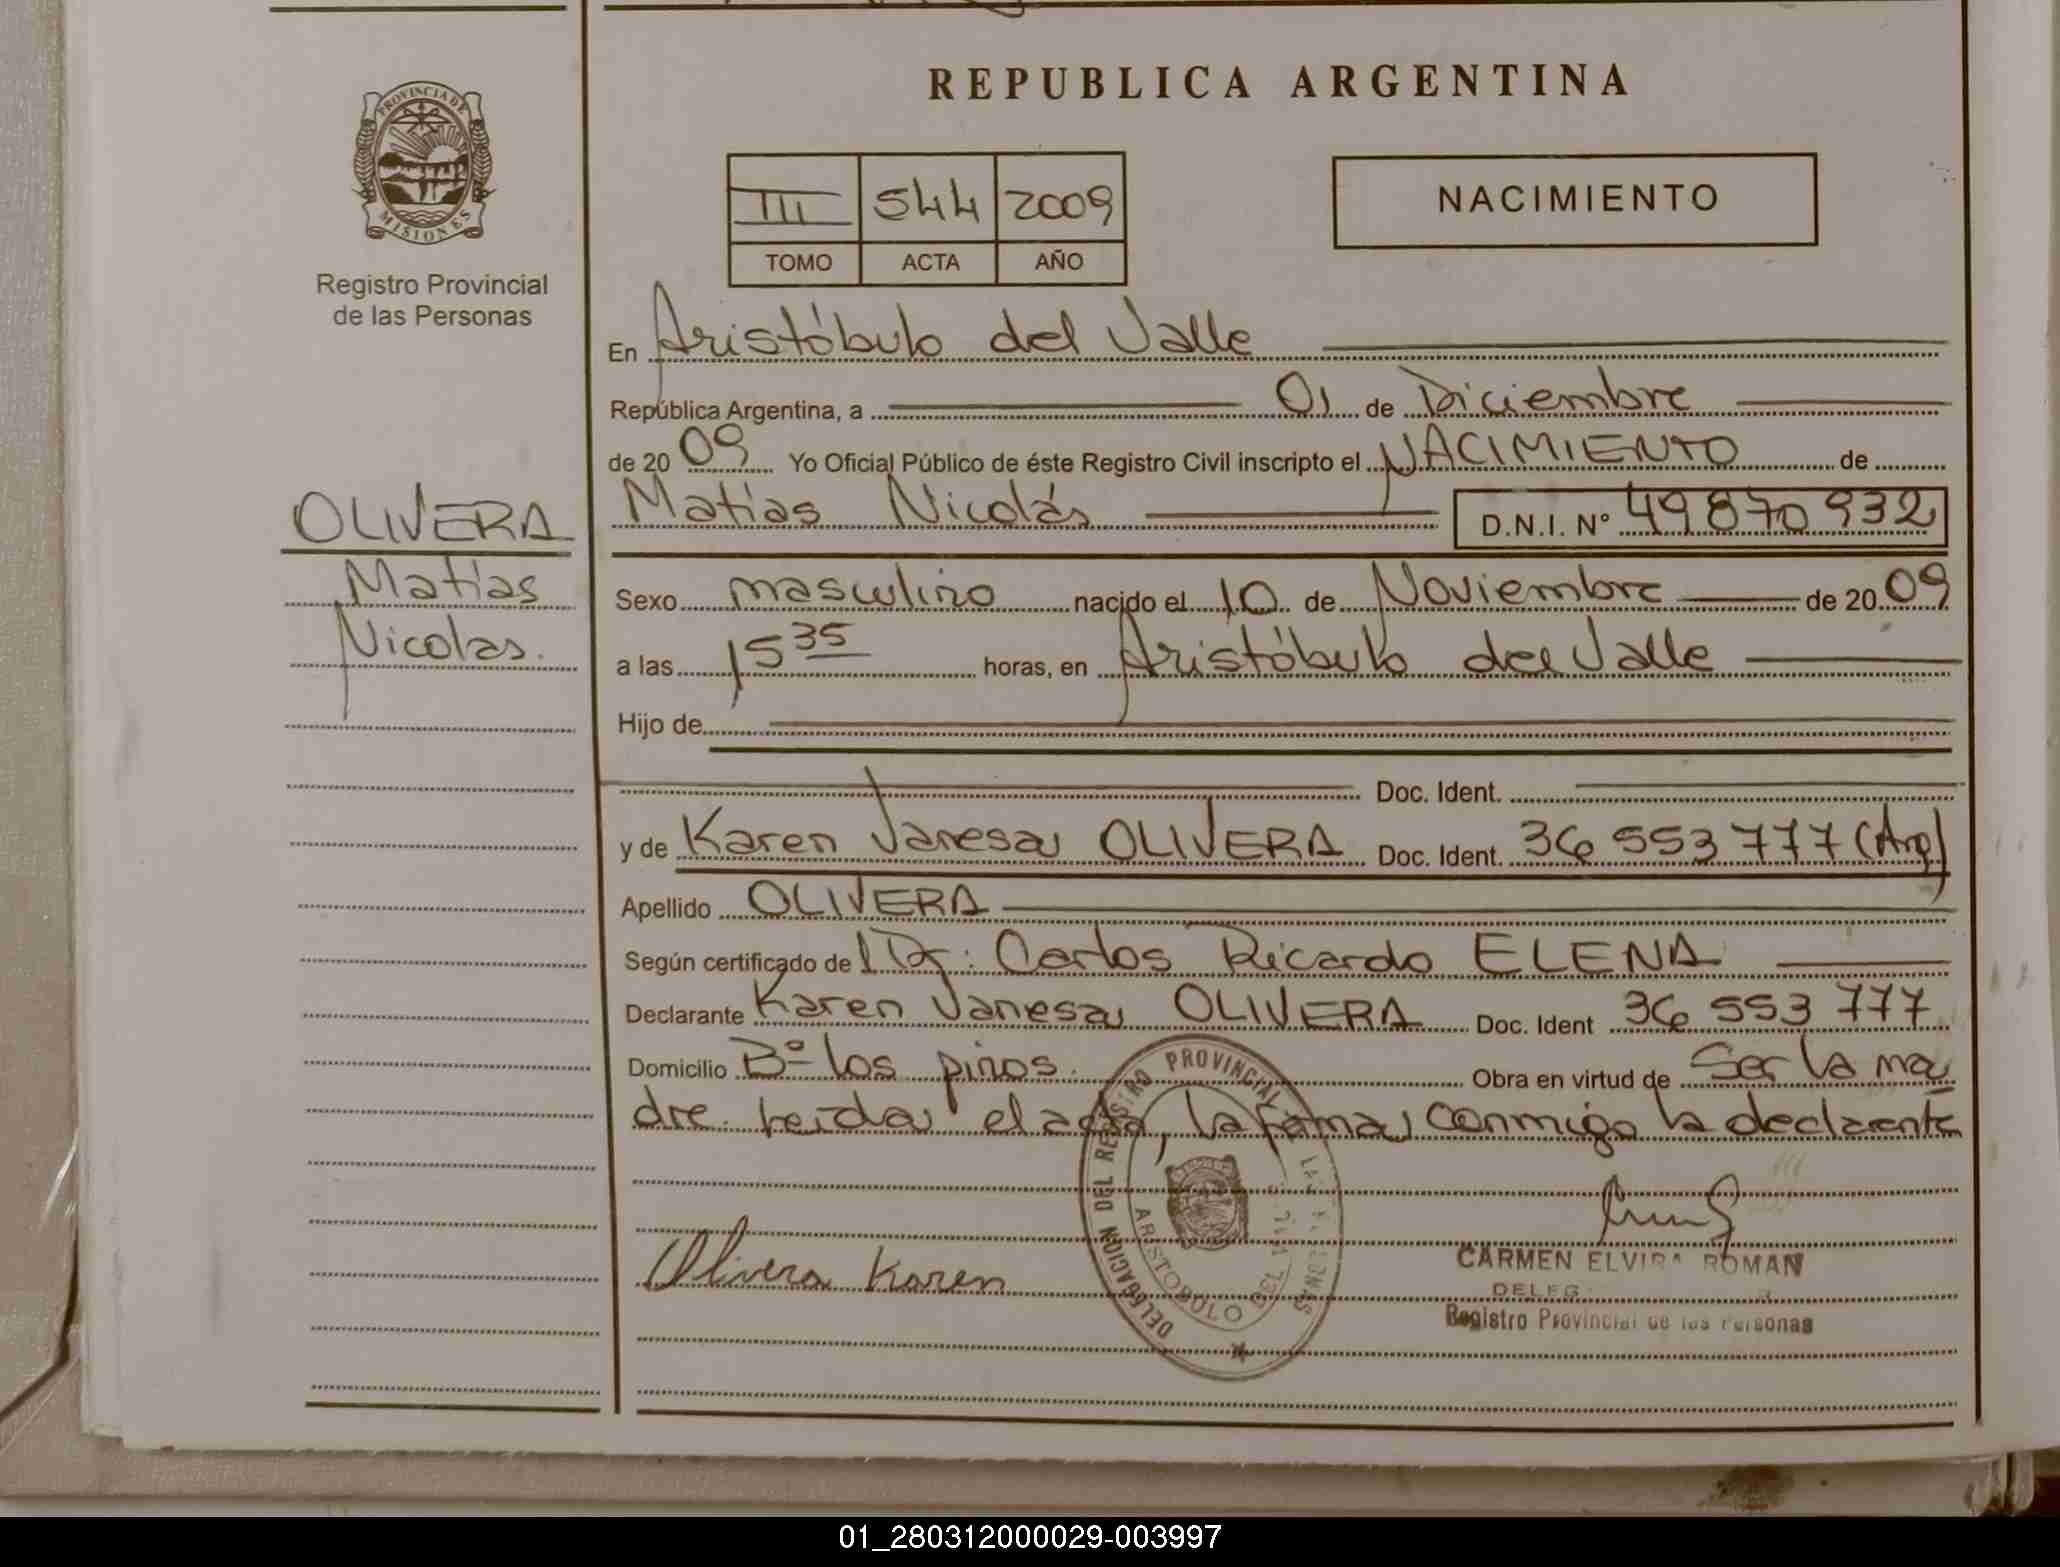 REPUBLICA ARGENTINA
PROVINCIA DE
MISIONES
Registro Provincial
de las Personas
III 544 2009
TOMO ACTA AÑO
NACIMIENTO
En Aristóbulo del Valle
República Argentina, a 01 de Diciembre
de 2009 Yo Oficial Público de éste Registro Civil inscripto el NACIMIENTO de
Matías Nicolás D.N.I. N° 49870932
OLIVERA
Matías
Nicolas.
Sexo masculino nacido el 10 de Noviembre de 2009
a las 15 35 horas, en Aristóbulo del Valle
Hijo de
Doc. Ident.
y de Karen Vanesa OLIVERA Doc. Ident. 36 553 777 (Arg)
Apellido OLIVERA
Según certificado de Dr: Carlos Ricardo ELENA
Declarante Karen Vanesa OLIVERA Doc. Ident 36 553 777
Domicilio Bº los pinos. Obra en virtud de Ser la ma
dre. Leida el acta, la firma conmigo la declarante
DELEGACION DEL REGISTRO PROVINCIAL LAS PERSONAS
ARISTOBULO DEL
Olivera Karen
CARMEN ELVIRA ROMAN
Registro Provincial de las Personas
01_280312000029-003997